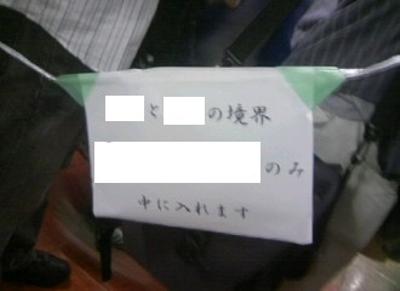 と の境界
のみ
中に入れます